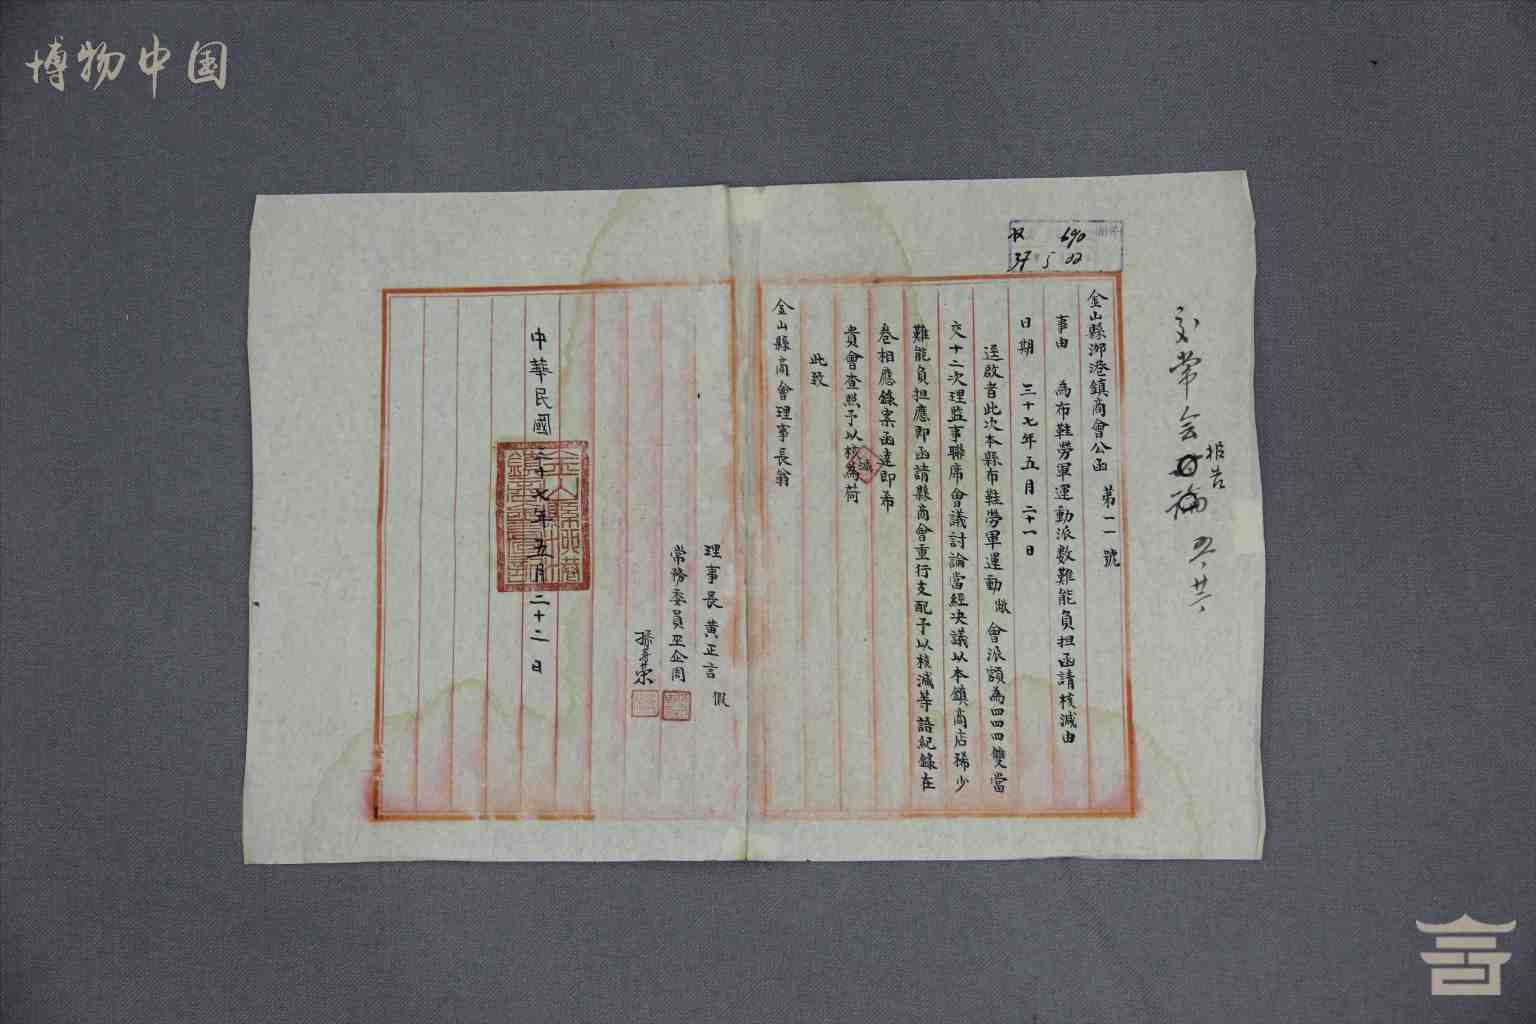 博物中国
收 690
37 5 22
交常会
报告
五、廿六、
金山縣泖港鎮商會公函 第一一號
事由 為布鞋勞軍運動派数難能負担函請核減由
日期 三十七年五月二十一日
逕啟者此次本縣布鞋勞軍運動敝會派額為四四四雙當
交十二次理監事聯席會議討論當經决議以本鎮商店稀少
難能負担應即函請縣商會重行支配予以核減等語紀錄在
卷相應錄案函達即希
貴會查照予以核減為荷
此致
金山縣商會理事長翁
理事長黄正言 假
常務委員巫企周
孫壽荣
中華民國三十七年五月二十二日